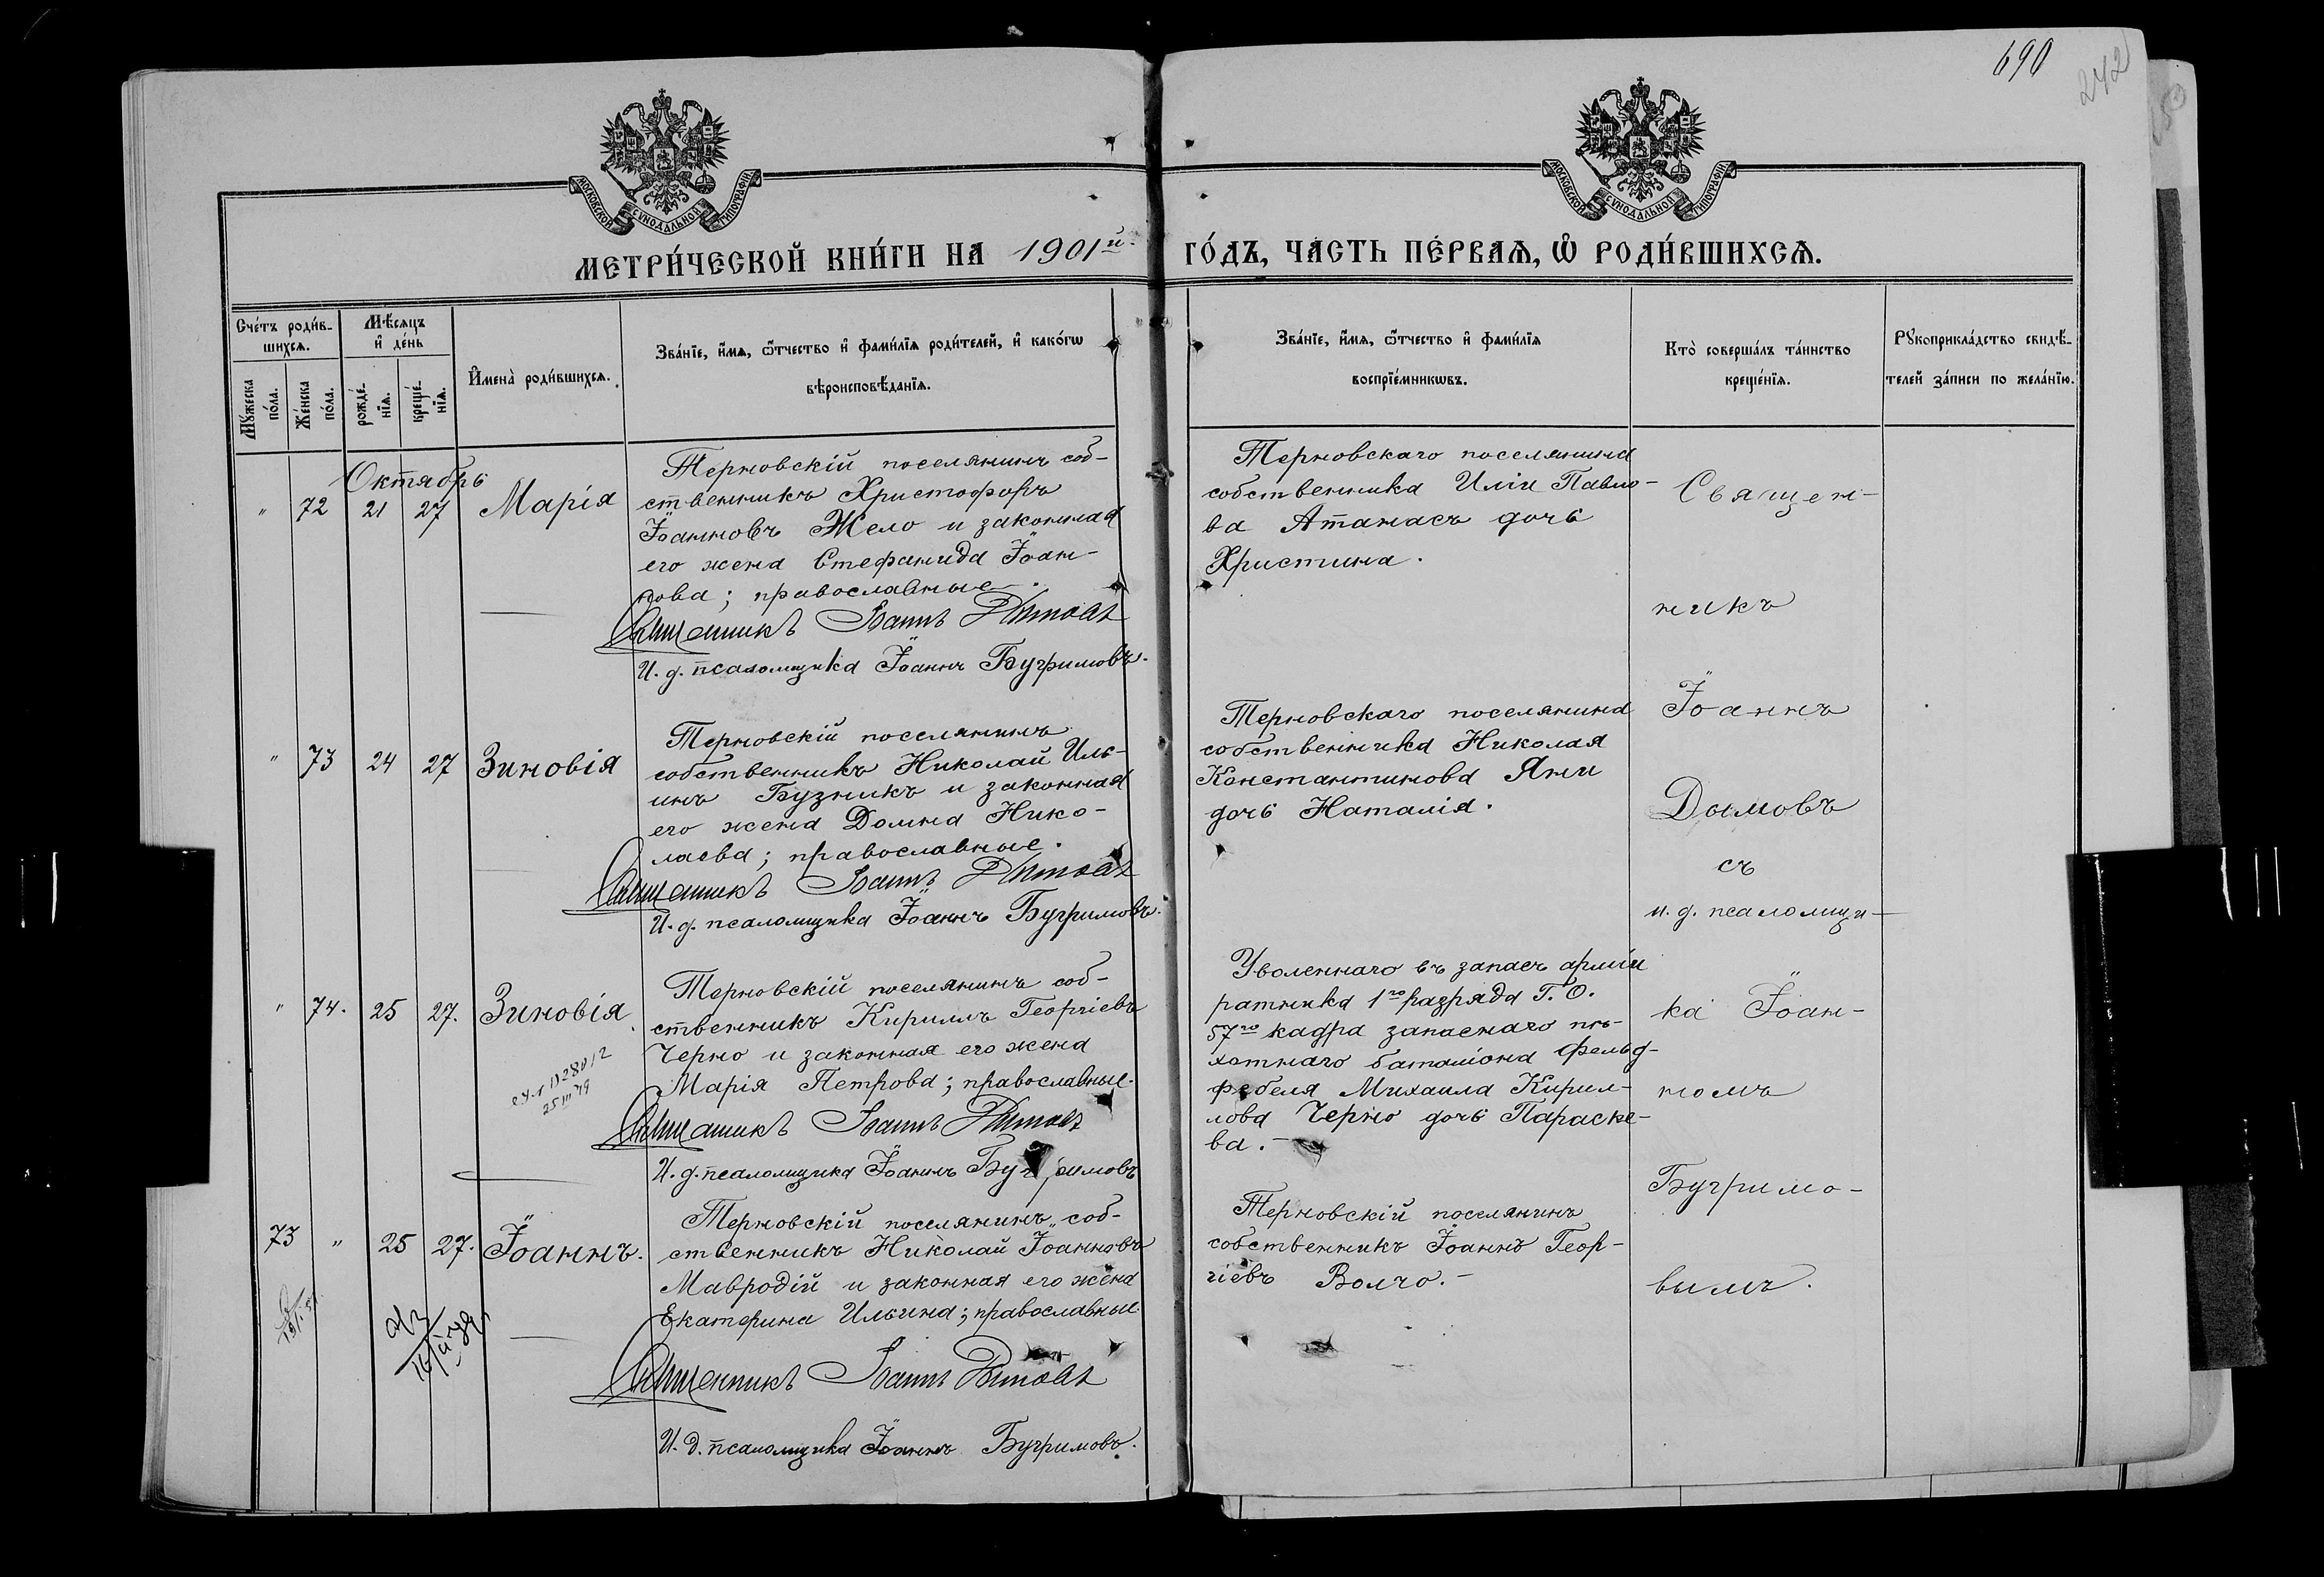 690
242
МОСКОВСКОЙ СѴНОДАЛЬНОЙ ТИПОГРАФІИ
МОСКОВСКОЙ СѴНОДАЛЬНОЙ ТИПОГРАФІИ
МЕТРИ́ЧЕСКОЙ КНИ́ГИ НА 1901й
ГО́ДЪ, ЧА́СТЬ ПЕ́РВАѦ, Ѡ҆ РОДИ́ВШИХСѦ.
Сче́тъ роди́в-
шихсѧ.
Мꙋ́жеска по́ла.
Же́нска по́ла.
Мѣ́сяцъ
и҆ де́нь
рожде́-
нїѧ.
креще́-
нїѧ.
И҆мена̀ роди́вшихсѧ.
Зва́нїе, и҆́мѧ, ѻ҆́тчество и҆ фами́лїѧ роди́телей, и҆ како́гѡ
вѣроисповѣ́данїѧ.
Зва́нїе, и҆́мѧ, ѻ҆́тчество и҆ фами́лїѧ
воспрїе́мникѡвъ.
Кто̀ соверша́лъ та́инство
креще́нїѧ.
Рꙋкоприкла́дство свидѣ́-
телей за́писи по жела́нїю.
Октябрь
" 72 21 27 Марія
Терновскій поселянинъ соб-
ственникъ Христофоръ
Іоанновъ Жело и законная
его жена Стефанида Іоан-
нова; православные.
Священникъ Іоаннъ Дымовъ
И. д. псаломщика Іоаннъ Бугримовъ.
Терновскаго поселянина
собственника Иліи Павло-
ва Атанасъ дочь
Христина.
" 73 24 27 Зиновія
Терновскій поселянинъ
собственникъ Николай Иль-
инъ Бузникъ и законная
его жена Домна Нико-
лаева; православные.
Священникъ Іоаннъ Дымовъ
И. д. псаломщика Іоаннъ Бугримовъ.
Терновскаго поселянина
собственника Николая
Константинова Яни
дочь Наталія.
" 74. 25 27. Зиновія
Терновскій поселянинъ соб-
ственникъ Кириллъ Георгіевъ
Черно и законная его жена
Марія Петрова; православные.
Священникъ Іоаннъ Дымовъ
И. д. псаломщика Іоаннъ Бугримовъ
Уволеннаго въ запасъ арміи
ратника 1го разряда Г. О.
57го кадра запаснаго пѣ-
хотнаго баталіона фельд-
фебеля Михаила Кирил-
лова Черно дочь Параске-
ва.
73 " 25 27. Іоаннъ.
Терновскій поселянинъ соб-
ственникъ Николай Іоанновъ
Мавродій и законная его жена
Екатерина Ильина; православные.
Священникъ Іоаннъ Дымовъ
И. д. псаломщика Іоаннъ Бугримовъ.
Терновскій поселянинъ
собственникъ Іоаннъ Геор-
гіевъ Волчо.
Священ-
никъ
Іоаннъ
Дымовъ
съ
и. д. псаломщи-
ка Іоан-
номъ
Бугримо-
вымъ.